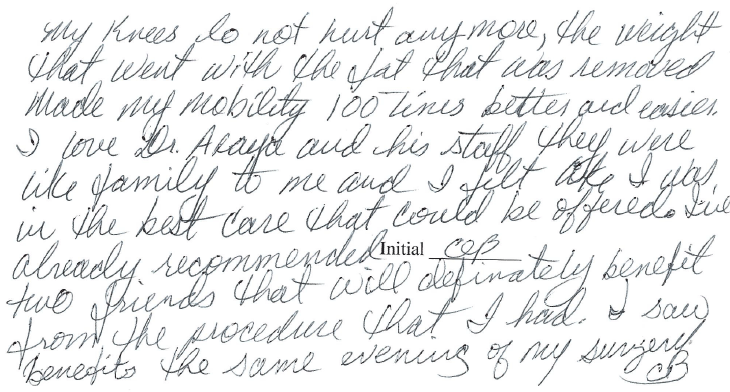 My Knees do not hurt anymore, the weight
that went with the fat that was removed
made my mobility 100 times better and easier.
I love Dr. Araya and his staff they were
like family to me and I felt like I was
in the best care that could be offered. I've
already recommended Initial CB
two friends that will definately benefit
from the procedure that I had. I saw
benefits the same evening of my surgery.
CB